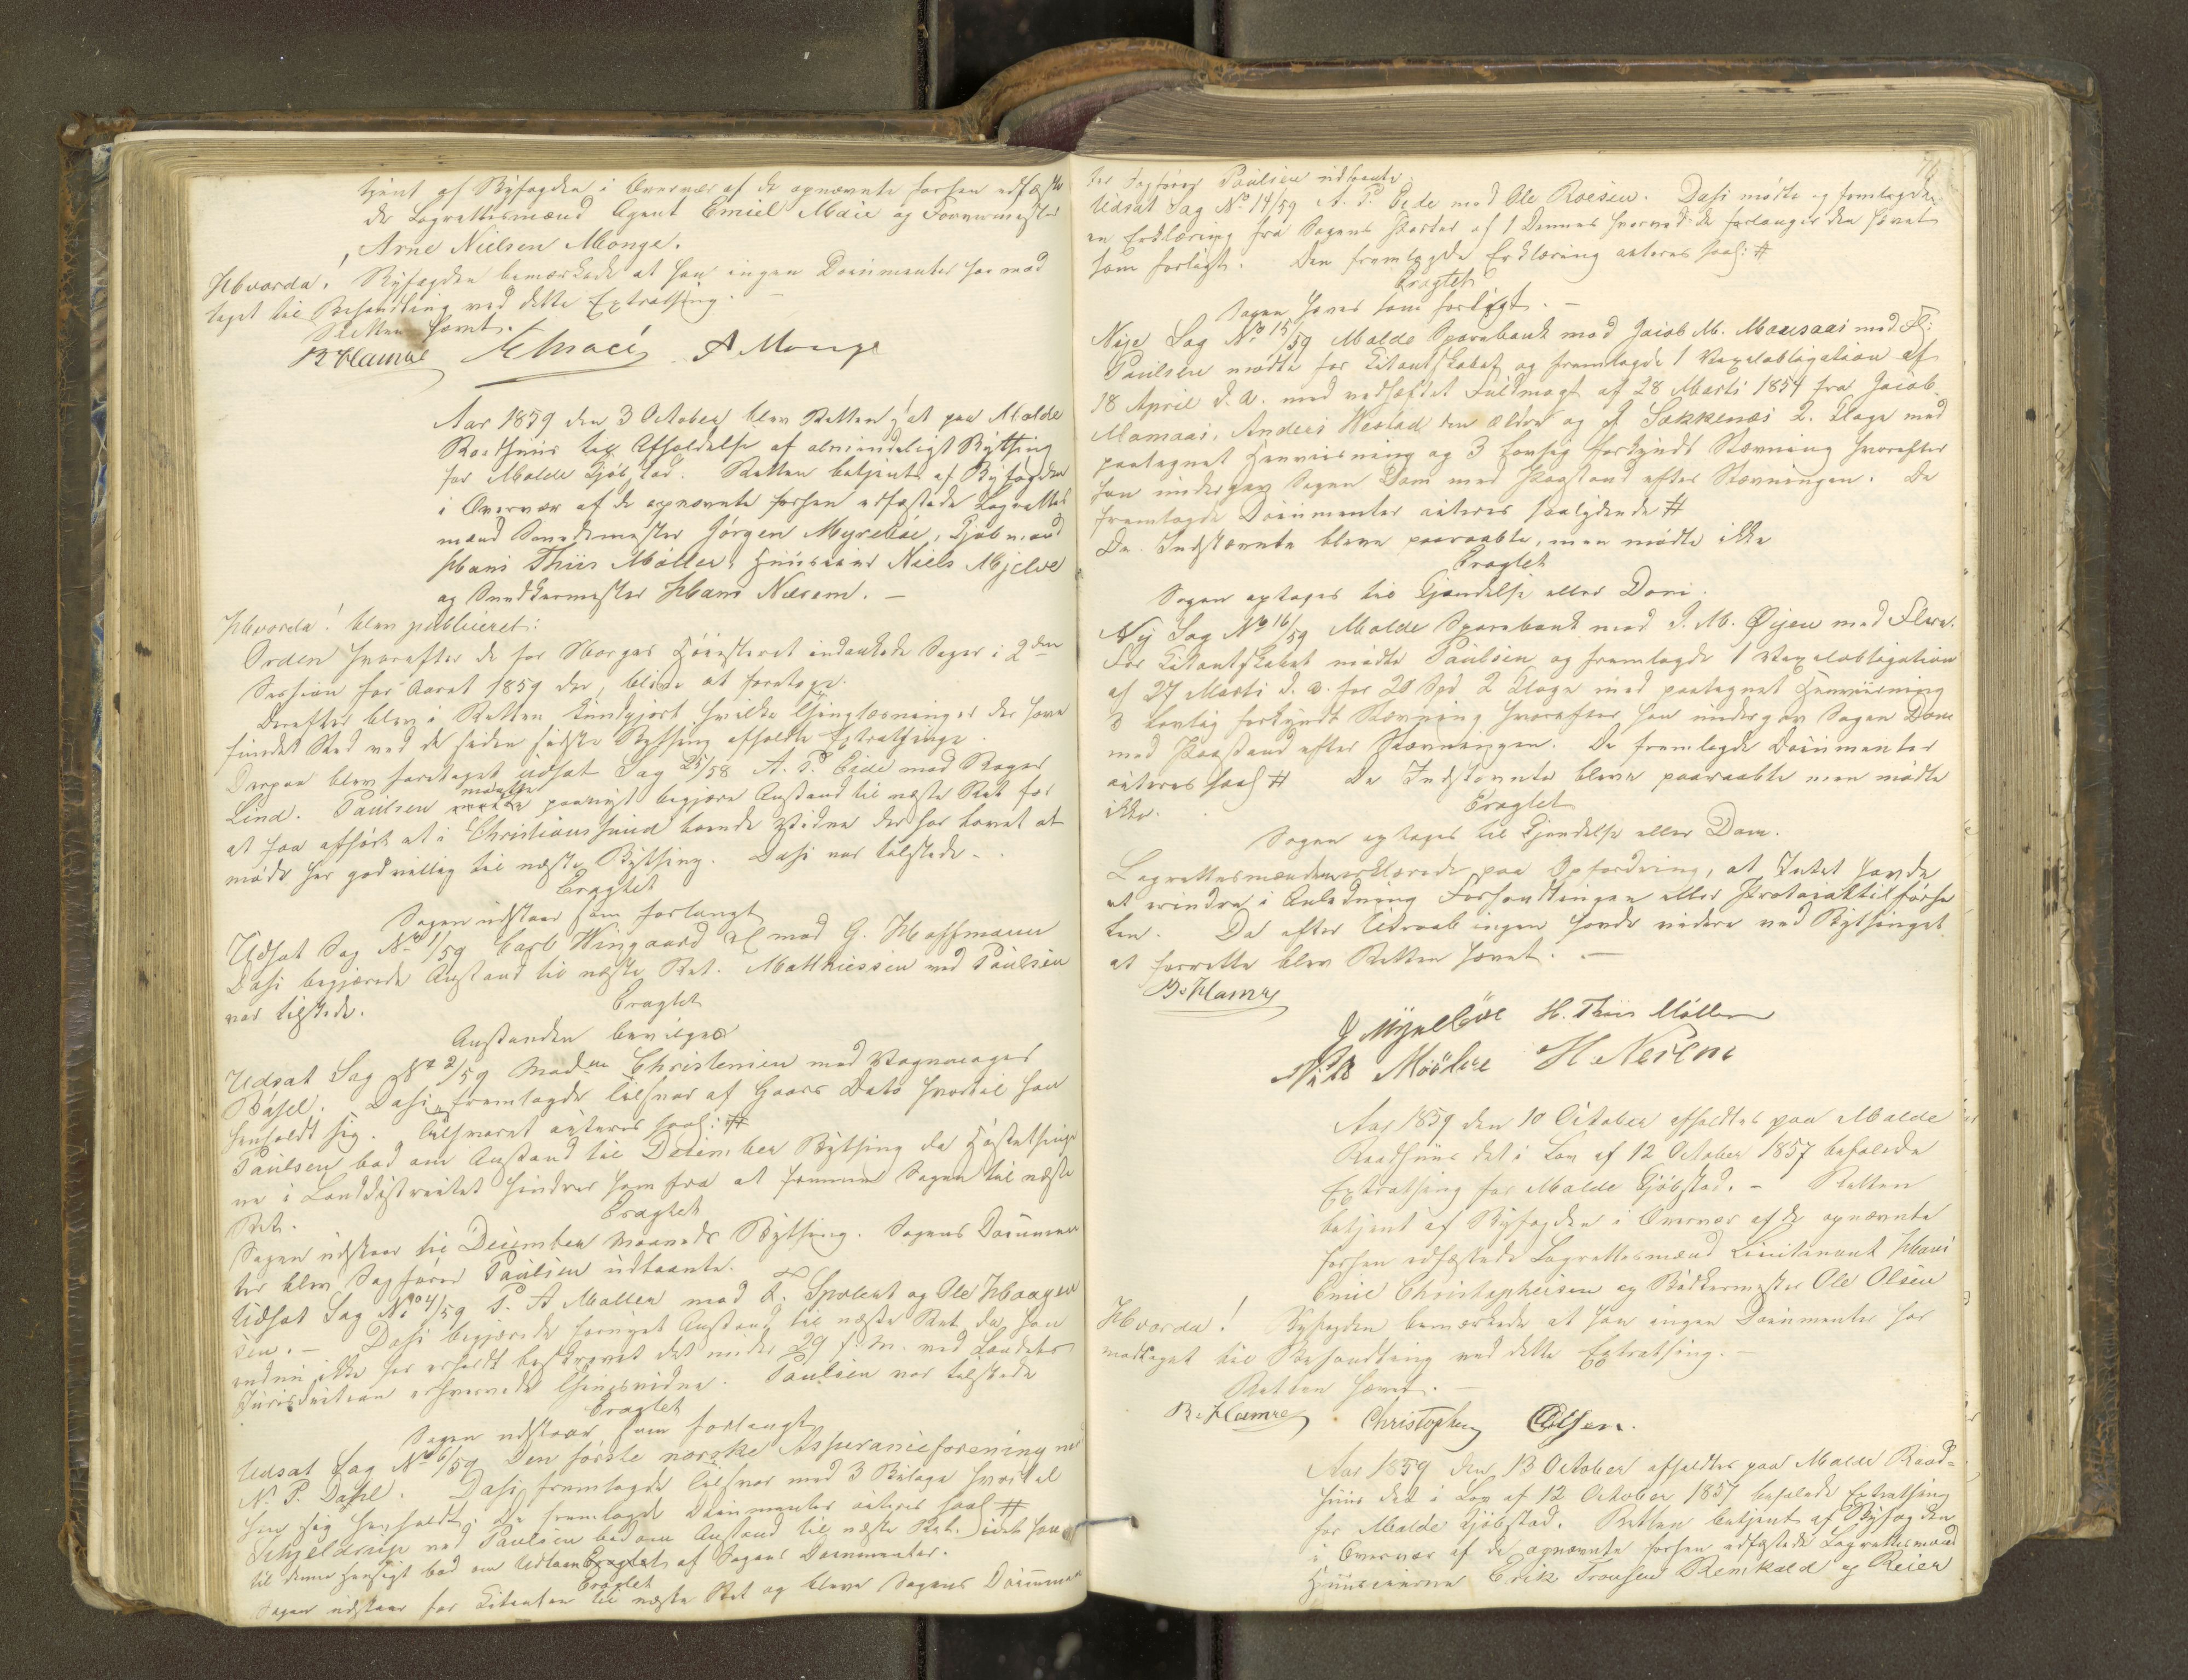 tjent af Byfogden i Overvær af de opnævnte forhen edfæste
de Lagrettesmænd Agent Emiel Maie og Farvermester
Arne Nielsen Monge.
Hvorda! Byfogden bemærkede at han ingen Documenter har mod
taget til Behandling ved dette Extrathing. –
Retten hævet.
B Hamre A Monge
Aar 1859 den 3 October blev Retten sat paa Molde
Raadhuus til Afholdelse af almindeligt Bything
for Molde Kjøbstad. Retten betjent af Byfogden
i Overvær af de opnævnte forhen edfæstede Lagrettes
mænd Jørgen Myreböe, Kjøbmand
Hans Thiis Møller, Huuseier Niels Mjelve
og Snedkermester Hans Næsem. –
Hvorda! blev publiceret:
Orden hvorefter de for Norges Høiesteret indankede Sager i 2den
Session for Aaret 1859 der, blive at foretage.
Derefter blev i Retten kundgjort hvilke Thinglæsninger der have
fundet Sted ved de siden sidste Bything afholdte Extrathinge.
Derpaa blev foretaget udsat Sag 25/58 A. P. Eide mod Roger
Lind. Paulsen mødte paanyt begjære Anstand til næste Ret for
at faa afhørt et i Christianssund boende Vidne der har lovet at
møde her godvillig til næste Bything. Dahl var tilstede.
Eragtet
Sagen udstaar som forlangt
Udsat Sag No 1/59 Carl Wingaard mod G. Hoffmann
Dahl begjærede Anstand til næste Ret. Matthiessen ved Paulsen
var tilstede.
Eragtet
Anstanden bevilges
Udsat Sag No 2/59 Madm Christensen mod Vognmager
Dahl fremlagde Tilsvar af Gaars Dato hvortil han
henholdt sig. Tilsvaret acteres saal: #
Paulsen bad om Anstand til December Bything da Høstethinge
ne i Landdistrictet hindrer ham fra at fremme Sagen til næste
Ret.
Eragtet
Sagen udstaar til December Maaneds Bything. Sagens Documen
ter blev Sagfører Paulsen udlaante.
Udsat Sag No 4/59 P. A Møller mod F. Spolert og Ole Haagen
sen. – Dahl begjærede fornyet Anstand til næste Ret da han
endnu ikke har erholdt beskrevet det under 29 f. M. ved Landets
Jurisdiction erhvervede Thingsvidne. Paulsen var tilstede
Eragtet
Sagen udstaar som forlangt
Udsat Sag No 6/59 Den første norske Assuranceforening mod
N. P. Dahl. Dahl fremlagde Tilsvar med 3 Bilage hvortil
han sig henholdt. De fremlagde Documenter acteres saal #
Schjeldrup ved Paulsen bad om Anstand til næste Ret. idet han
til denne Hensigt bad om Udlaan af Sagens Documenter.
Eragtet
Sagen udstaar for Citanten til næste Ret og bleve Sagens Documen
76
ter Sagfører Paulsen udlaante.
Udsat Sag No 14/59 A. P. Eide mod Ole Roesen. Dahl mødte og fremlagde
en Erklæring fra Sagens Parter af 1 Dennes hvorved de forlanger den hævet
som forligt. Den fremlagde Erklæring acteres saal: #
Eragtet
Sagen hæves som forligt. –
Nye Sag No 15/59 Molde Sparebank mod Jacob M. Mausaas med Fl:
Paulsen mødte for Citantskabet og fremlagde 1 Vexelobligation af
18 April d. A. med vedhæftet Fuldmagt af 28 Marts 1854 fra Jacob
Mamaas, Anders Westad den ældre og J Sekkenæs 2. Klage med
paategnet Henviisning og 3 lovlig forkyndt Stævning hvorefter
han undergav Sagen Dom med Paastand efter Stævningen. De
fremlagde Documenter acteres saalydende #
De Indstævnte bleve paaraabte, men mødte ikke
Eragtet
Sagen optages til Kjendelse eller Dom.
Ny Sag No 16/59 Molde Sparebank mod J. M. Øijen med Flere.
For Citantskabet mødte Paulsen og fremlagde 1 Vexelobligation
af 27 Marts d. A. for 20 Spd 2 Klage med paategnet Henviisning
3 lovlig forkyndt Stævning hvorefter han undergav Sagen Dom
med Paastand efter Stævningen. De fremlagde Documenter
acteres saal # De Indstævnte bleve paaraabte men mødte
ikke.
Eragtet
Sagen optages til Kjendelse eller Dom.
Lagrettesmændene erklærede paa Opfordring, at Intet havde
at erindre i Anledning Forhandlingen eller Protocoltilførse
len. Da efter Udraab ingen havde videre ved Bythinget
at forrette blev Retten hævet. –
B. Hamre
J Myrebøe H. Thiis Møller
Niels Mjelve H Nesem
Aar 1859 den 10 October afholdtes paa Molde
Raadhuus det i Lov af 12 October 1857 befalede
Extrathing for Molde Kjøbstad. – Retten
betjent af Byfogden i Overvær af de opnævnte
forhen edfæstede Lagrettesmænd Lieutenant Hans
Emil Christophersen og Bødkermester Ole Olsen
Hvorda! Byfogden bemærkede at han ingen Documenter har
modtaget til Behandling ved dette Extrathing. –
Retten hævet. –
B. Hamre Christophersen OOlsen.
Aar 1859 den 13 October afholdtes paa Molde Raad-
huus det i Lov af 12 October 1857 befalede Extrathing
for Molde Kjøbstad. Retten betjent af Byfogden
i Overvær af de opnævnte forhen edfæstede Lagrettesmænd
Huuseierne Erik Tronsen Remkald og Reier